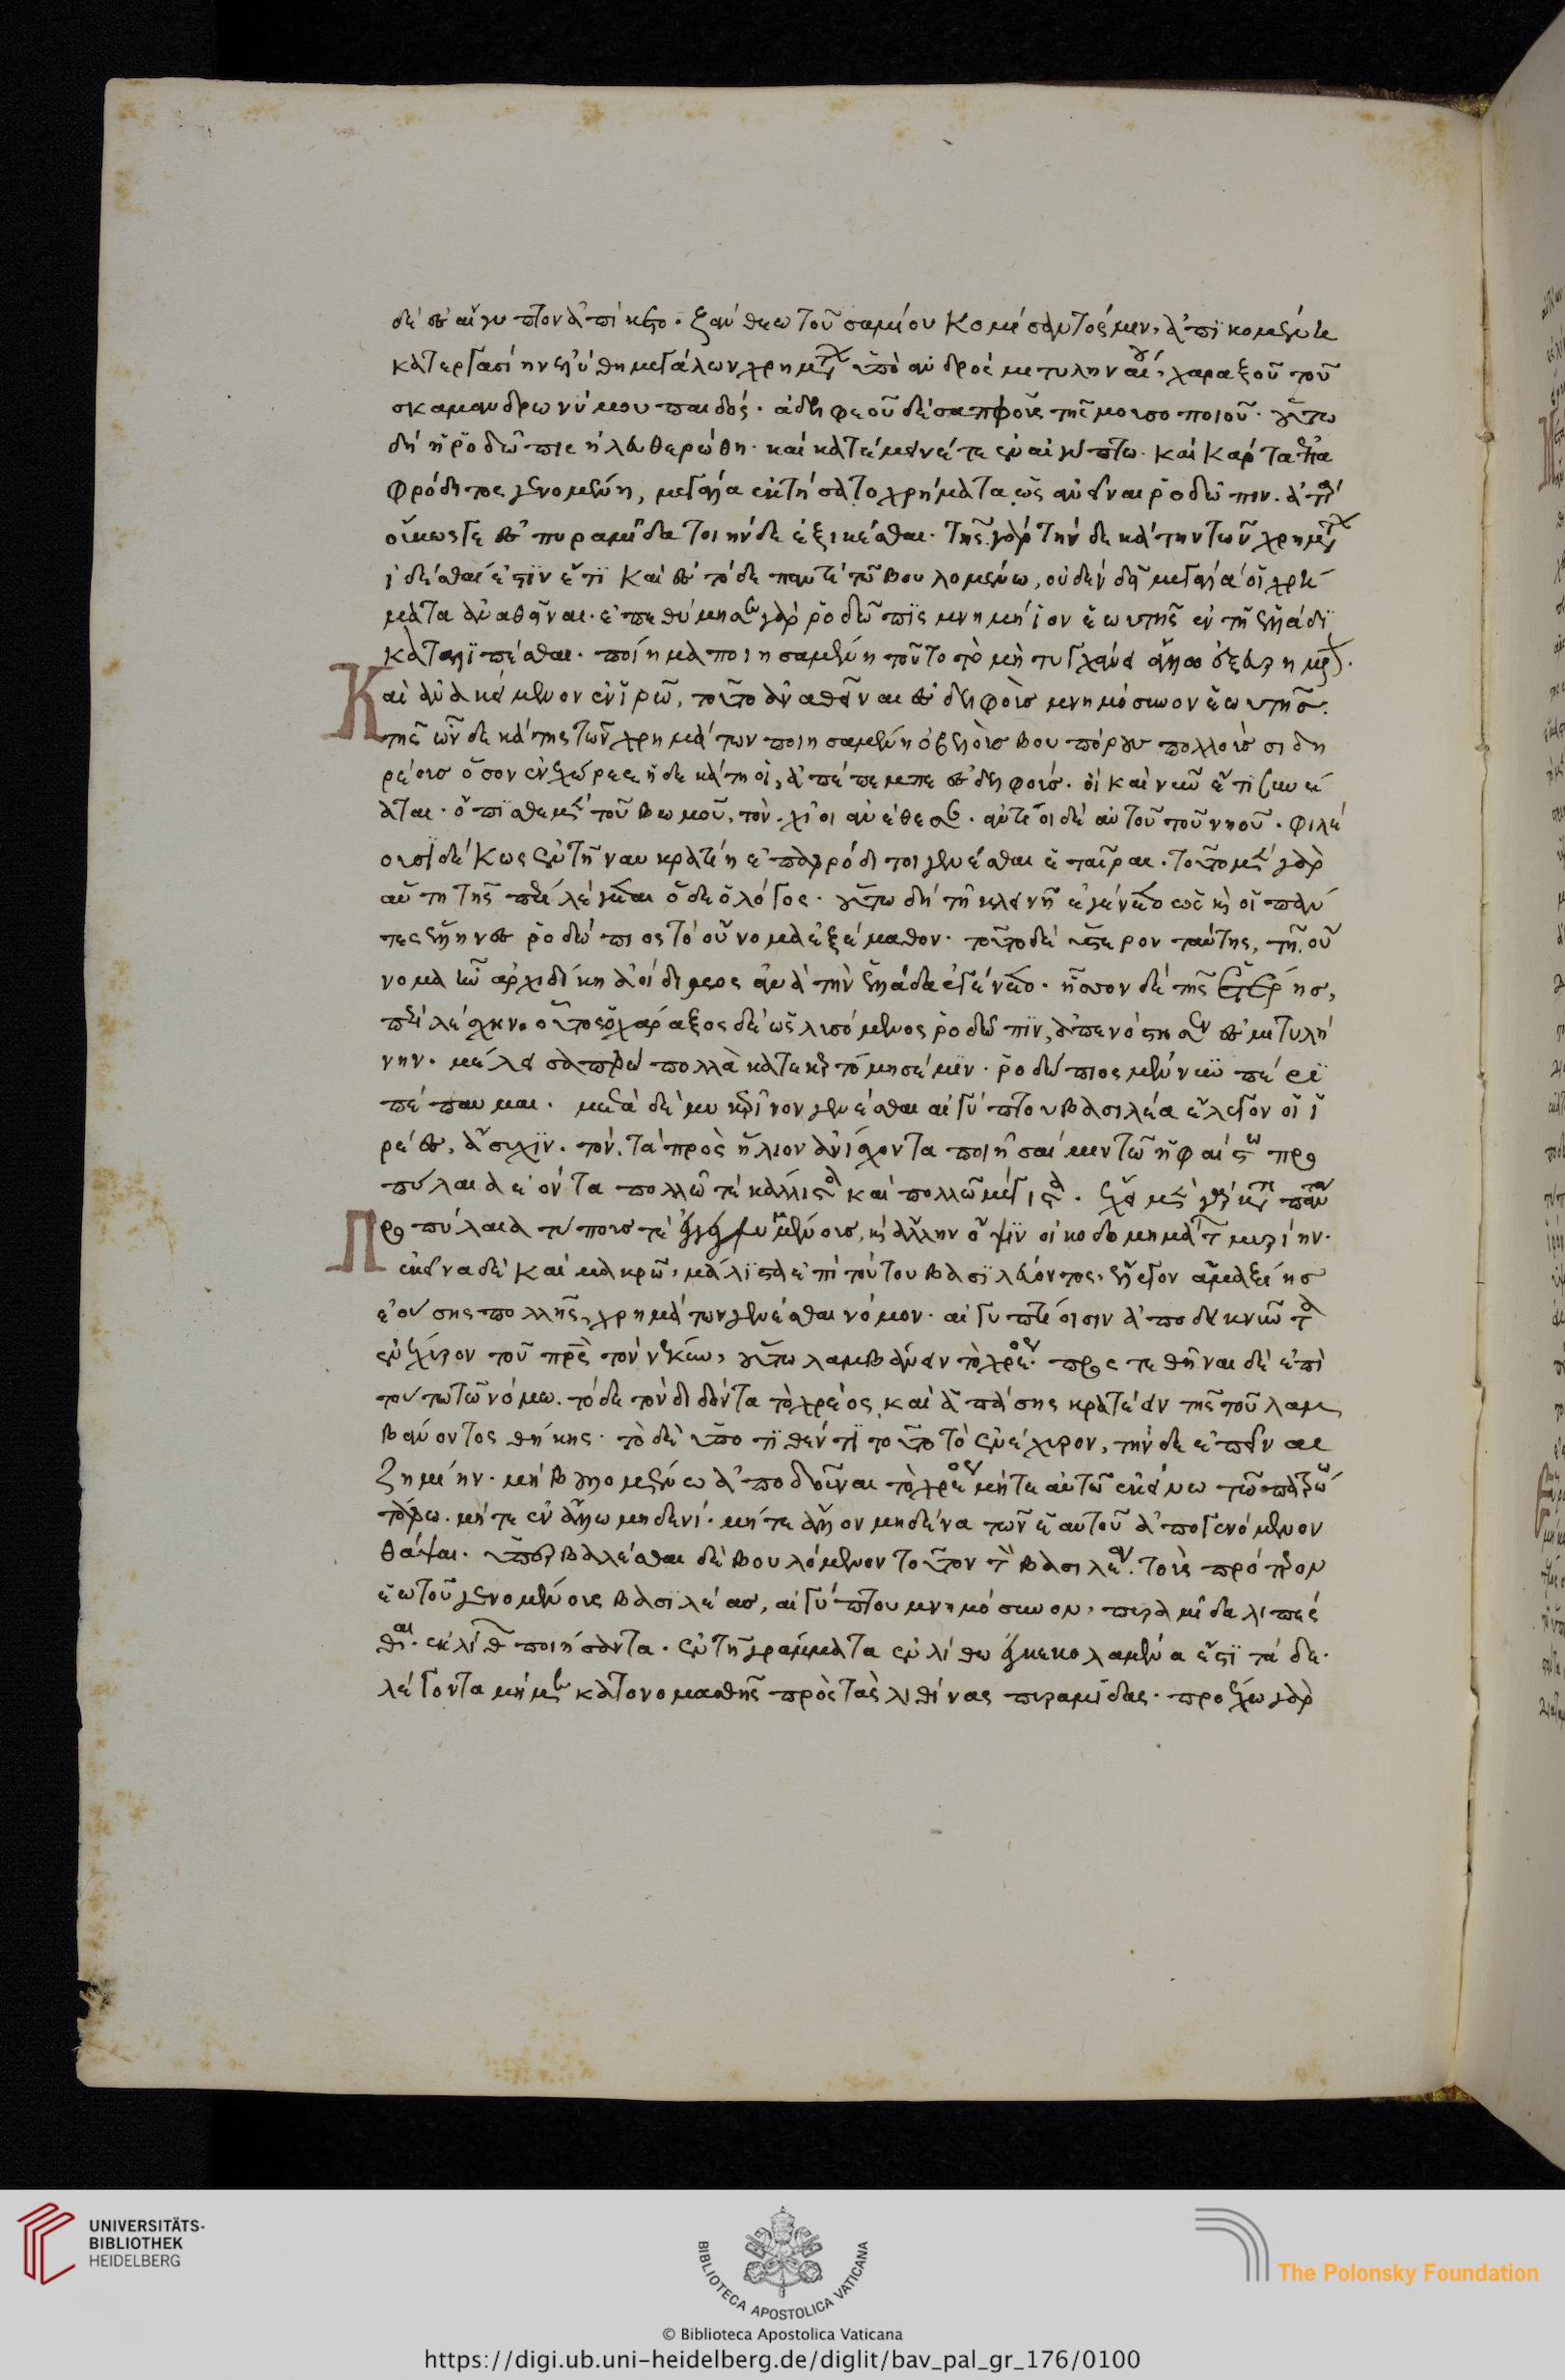 δὲ ἐς αἴγυπτον ἀπίκετο. ξάνθεω τοῦ σαμίου κομίσαντός μιν, ἀπϊκομένη δὲ
κατεργασίην ἐλύθη μεγάλων χρημάτων ὑπὸ ἀνδρὸς μιτυληναίου, χαραξου τοῦ
σκαμανδρωνύμου παιδός. ἀδελφεοῦ δὲ σαπφοῦς τῆς μουσοποιοῦ. οὕτω
δὴ ἡ ῥοδῶπις ἠλευθερώθη. καὶ κατέμεινέ τε ἐν αἰγύπτω. καὶ κάρτα ἐπα
φρόδιτος γενομένη, μεγάλα ἐκτήσατο χρήματα ὡς ἂν εἶναι ῥοδῶπιν. ἀτὰρ
οὔκως γε ἐς πυραμίδα τοιήνδε ἐξικέσθαι. τῆς γὰρ τὴν δεκάτην τῶν χρημάτων
ἰδέσθαι ἐστῒν ἔτϊ καὶ ἐς τόδε παντὶ τῶ βουλομένω, οὐδὲν δεῖ μεγάλα οἱ χρή
ματα ἀναθεῖναι. ἐπεθύμησεν γὰρ ῥοδῶπϊς μνημήϊον ἑωυτῆς ἐν τῆ ἑλλάδϊ
καταλϊπέσθαι. ποίημα ποιησαμένη τοῦτο τὸ μὴ τυγχάνει ἄλλω ἐξευρημένον.
Καὶ ἀνακείμενον ἐν ἱρῶ, τοῦτο ἀναθεῖναι ἐς δελφοὺς μνημόσυνον ἑωυτῆς.
τῆς ὦν δεκάτης τῶν χρημάτων ποιησαμένη ὀβελοὺς βουπόρους πολλοὺς σιδη
ρέους ὅσον ἐνεχώρεε ἡ δεκάτη οἱ, ἀπέπεμπε ἐς δελφούς. οἳ καὶ νῦν ἔτϊ
ὄπϊσθε μὲν τοῦ βωμοῦ, τὸν χῖοι ἀνέθεσαν. ἀντίοι δὲ αὐτοῦ τοῦ νηοῦ. φιλέ
ουσϊ δέ κως ἐν τῆ ναυκράτι ἐπαφρόδιτοι γενέσθαι ἑταῖραι. τοῦτο μὲν γὰρ
αὕτη τῆς πέρι λέγεται ὅδε ὁ λόγος. οὕτω δή τι κλεινὴ ἐγένετο ὡς καὶ οἱ πάν
τες ἕλληνες ῥοδώπιος τὸ οὔνομα ἐξέμαθον. τοῦτο δὲ ὕστερον ταύτης, τῆ οὔ
νομα ἦν ἀρχιδίκη ἀοίδιμος ἀνὰ τὴν ἑλλάδα ἐγένετο. ἧσσον δὲ τῆς ἑτέρης,
περιλέσχην. ὁ χάραξος δὲ ὡς λυσάμενος ῥοδῶπϊν, ἀπενόστησεν ἐς μιτυλή
νην. μέλεϊ σαπφὼ πολλὰ κατεκερτόμησέ μϊν. ῥοδώπιος μέν νυν πέρϊ
πέπαυμαι. μετὰ δὲ μυκερῖνον γενέσθαι αἰγύπτου βασιλέα ἔλεγον οἱ ἱ
ρέες, ἄσυχϊν. τὸν τὰ πρὸς ἥλιον ἀνίσχοντα ποιῆσαί μιν τῶ ἡφαίστω προ
πύλαια ἐόντα πολλῶ τὲ κάλλιστα καὶ πολλῶ μέγιστα. ἔχει μὲν γὰρ καὶ τὰ πάντα
Προπύλαια τύπους τὲ ἐγγεγλυμμένους, καὶ ἄλλην ὄψϊν οἰκοδομημάτων μυρίην.
ἐκεῖνα δὲ καὶ μακρῶ, μάλϊστα ἐπὶ τούτου βασϊλεύοντος, ἔλεγον ἀμειξίης
ἐούσης πολλῆς, χρημάτων γενέσθαι νόμον. αἰγυπτίοισιν ἀποδεικνύντα
ἐνέχυρον τοῦ πατρὸς τὸν νέκυν, οὕτω λαμβάνειν τὸ χρέος. προστεθῆναι δὲ ἐπὶ
τούτω τῶ νόμω. τόδε τὸν διδόντα τὸ χρέος, καὶ ἁπάσης κρατέειν τῆς τοῦ λαμ
βάνοντος θήκης. τὸ δὲ ὑποτϊθέντϊ τοῦτο τὸ ἐνέχυρον, τήνδε ἐπεῖναι
ζημίην. μὴ βουλομένω ἀποδοῦναι τὸ χρέος μήτε αὐτῶ ἐκείνω τῶ πατρώω
τάφω. μήτε ἐν ἄλλω μηδενί. μήτε ἄλλον μηδένα τῶν ἑαυτοῦ ἀπογενόμενον
θάψαι. ὑπερβαλέσθαι δὲ βουλόμενον τοῦτον τὸν βασιλέα τοὺς πρότερον
ἑωτοῦ γενομένους βασϊλέας, αἰγύπτου μνημόσυνον, πυραμίδα λιπέσ
θαι. ἐκ λίθων ποιήσαντα. ἐν τῆ γράμματα ἐν λίθω ἐγκεκολαμμένα ἐστϊ τάδε.
λέγοντα μή με κατονοσθῆς πρὸς τὰς λιθίνας πυραμίδας. προέχω γὰρ
UNIVERSITÄTS-
BIBLIOTHEK
HEIDELBERG
BIBLIOTECA APOSTOLICA VATICANA
The Polonsky Foundation
© Biblioteca Apostolica Vaticana
https://digi.ub.uni-heidelberg.de/diglit/bav_pal_gr_176/0100